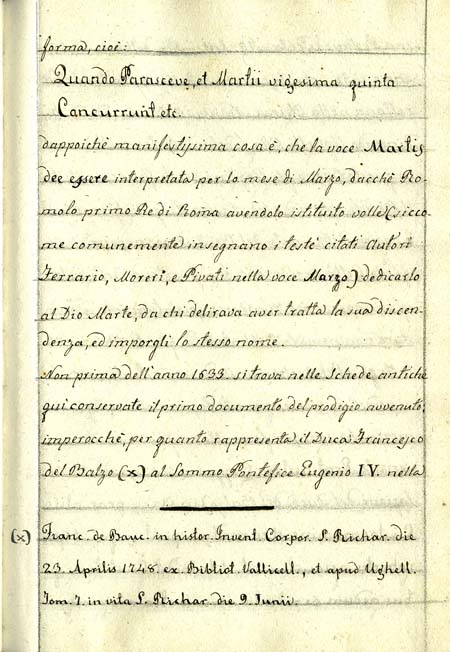 forma, cioè:
Quando Parasceve, et Martii vigesima quinta
Concurrunt etc.
dappoichè manifestissima cosa è, che la voce Martis
dee essere interpretata per lo mese di Marzo, dacchè Ro-
molo primo Re di Roma avendolo istituito volle (sicco-
me comunemente insegnano i testè citati Autori
Ferrario, Moreri, e Pivati nella voce Marzo) dedicarlo
al Dio Marte, da chi delirava aver tratta la sua discen-
denza, ed imporgli lo stesso nome.
Non prima dell'anno 1633 si trova nelle Schede antiche
qui conservate il primo documento del prodigio avvenuto;
imperocchè, per quanto rappresenta il Duca Francesco
del Balzo (x) al Sommo Pontefice Eugenio IV. nella
(x) Franc. de Bauc. in histor. Invent. Corpor. S. Richar. die
23. Aprilis 1748. ex Bibliot. Vallicell., et apud Ughell.
Tom. 7. in vita S. Richar. die 9. Junii.